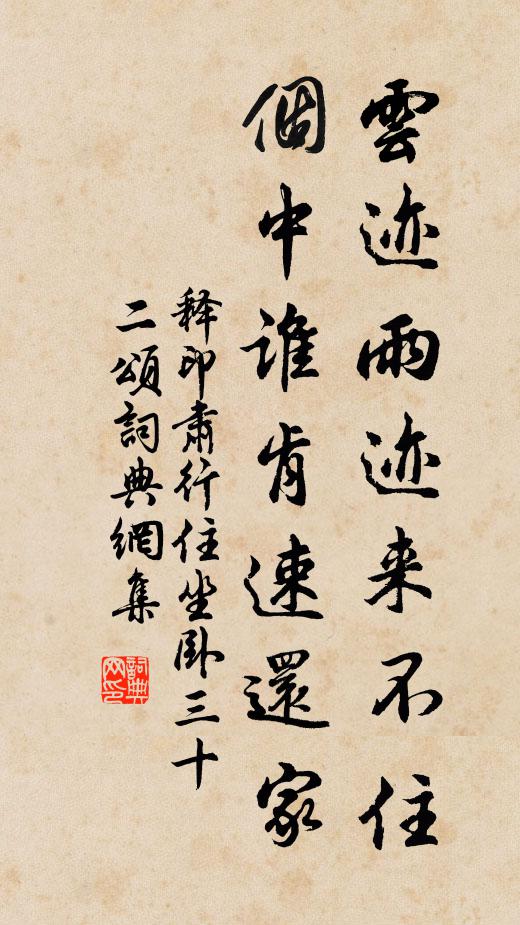 雲迹雨迹来不住
個中誰肯速還家
释印肃行住坐卧三十
二頌詞典網集
詞典网印